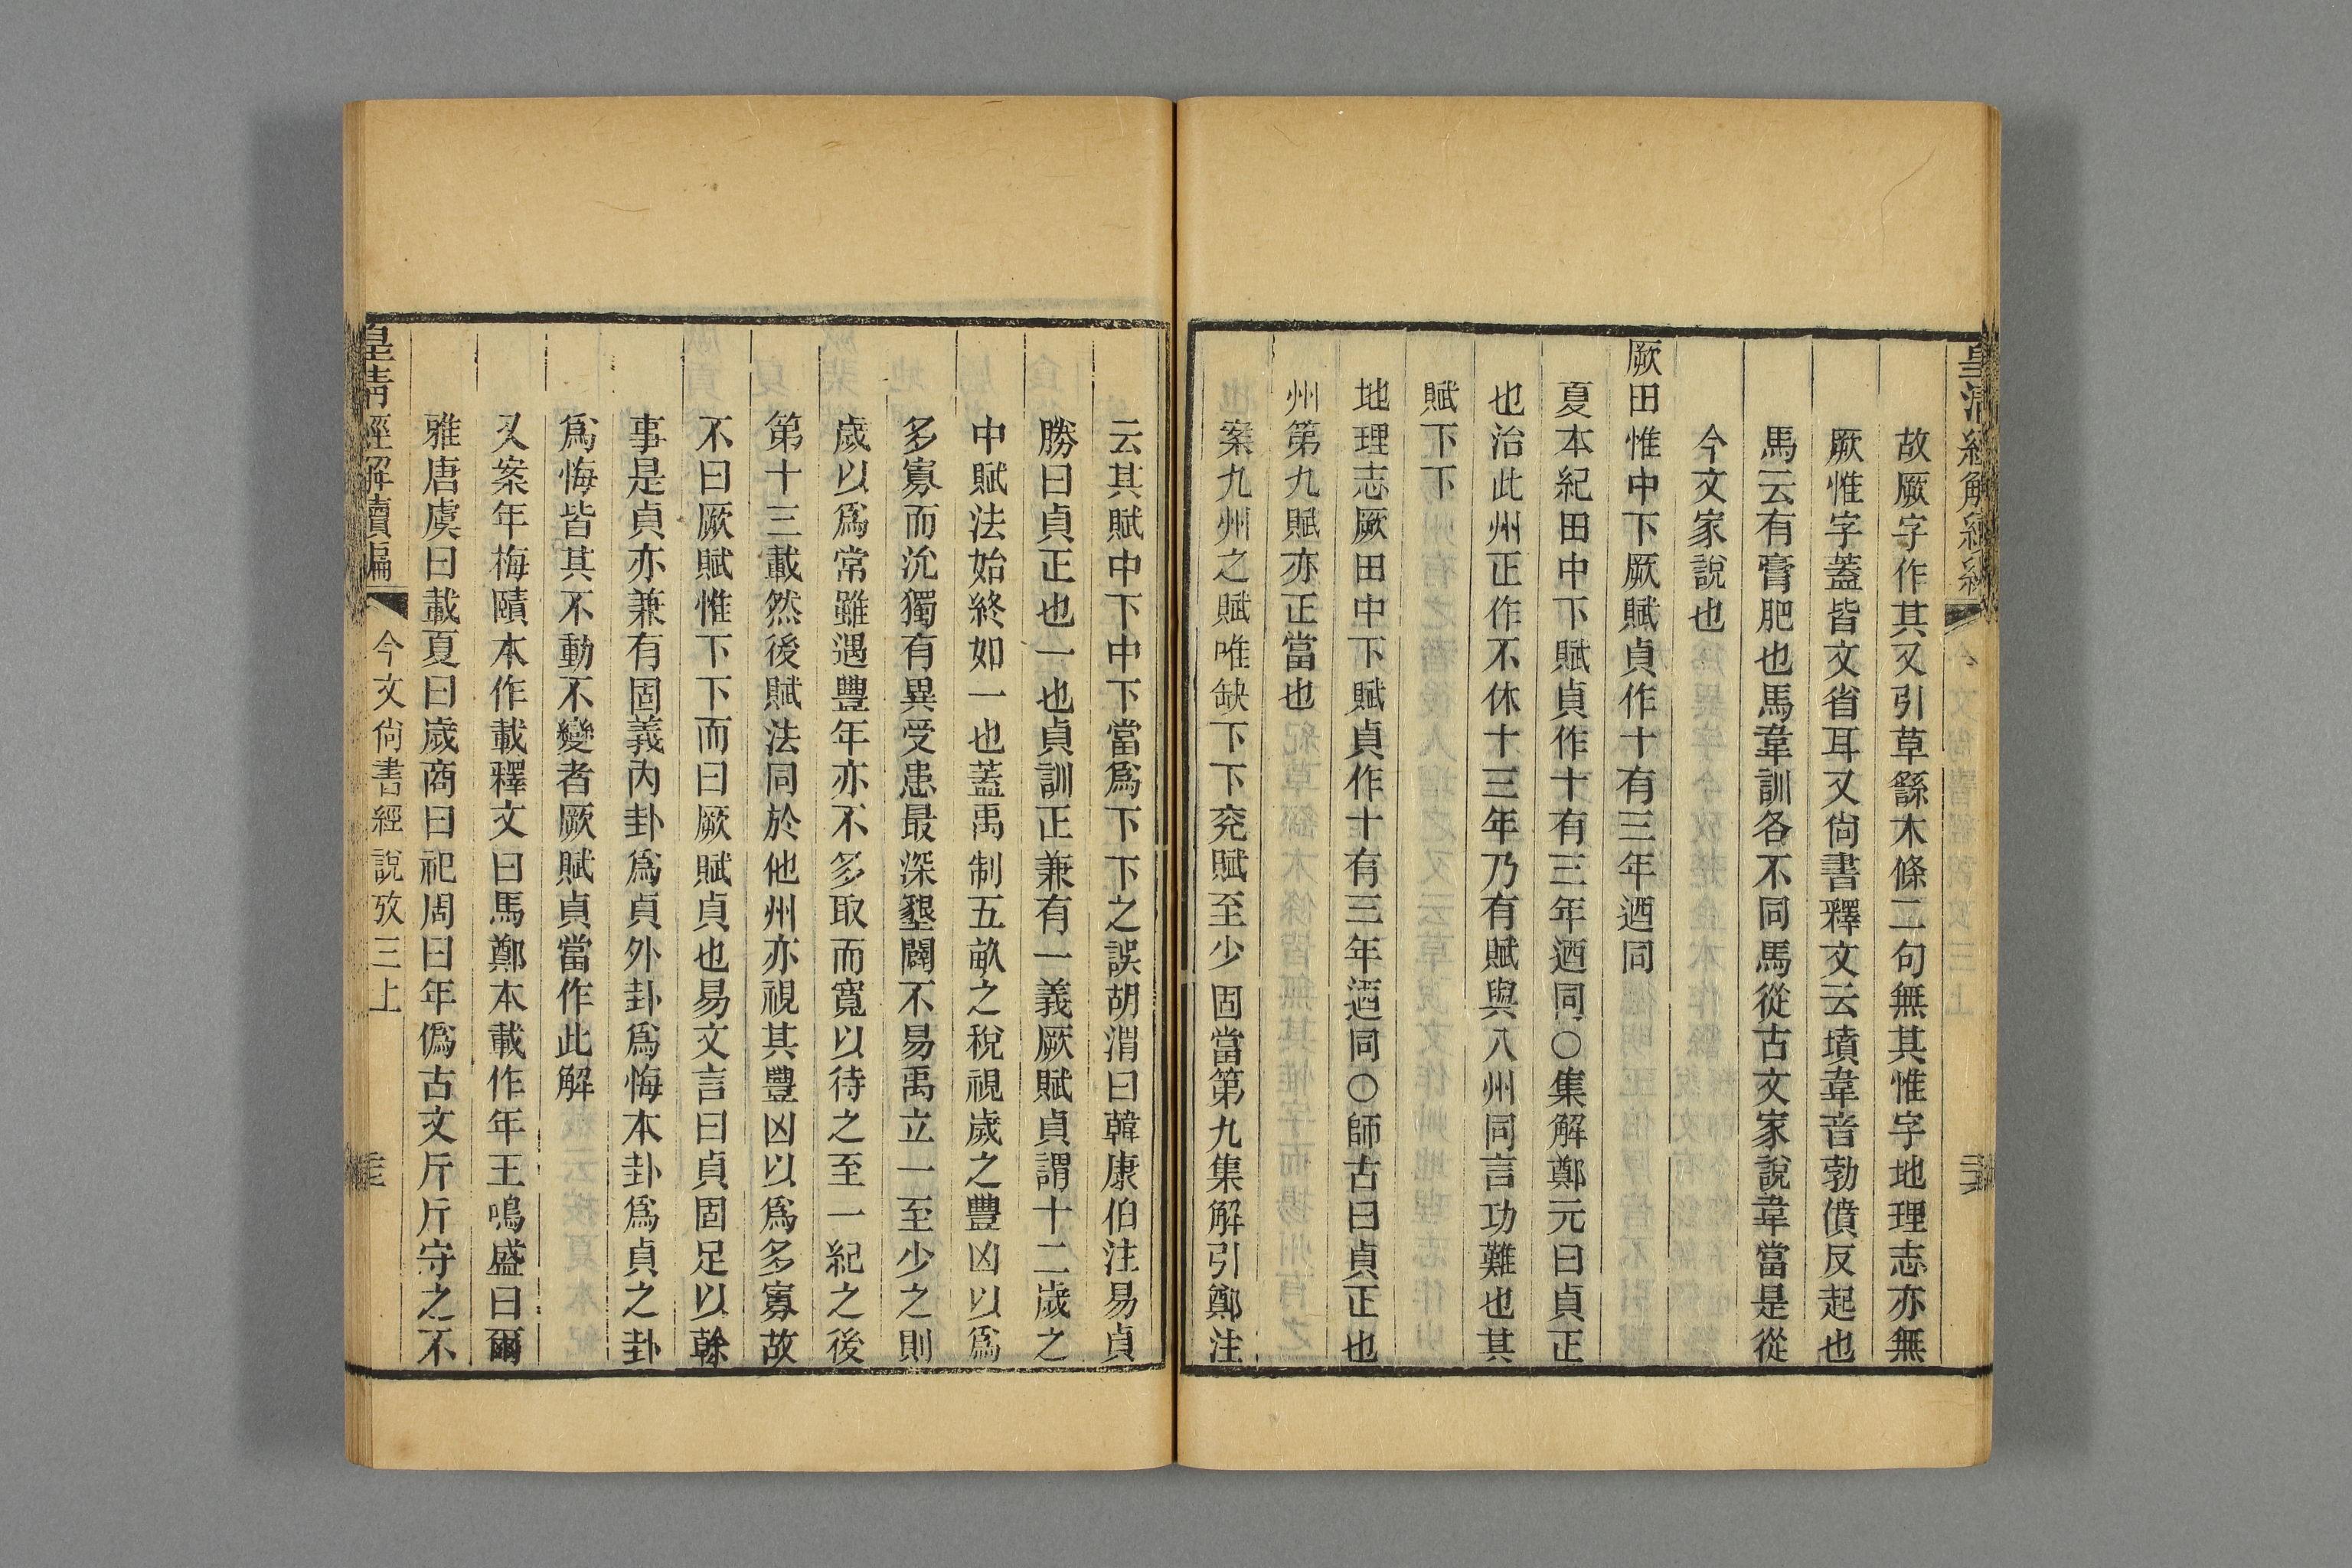 故厥字作其又引草繇木條二句無其惟字地理志亦無
厥惟字蓋皆文省耳又尙書釋文云墳韋音勃憤反起也
馬云有膏肥也馬韋訓各不同馬從古文家說韋當是從
今文家說也
厥田惟中下厥賦貞作十有三年迺同
夏本紀田中下賦貞作十有三年迺同○集解鄭元曰貞正
也治此州正作不休十三年乃有賦與八州同言功難也其
賦下下
地理志厥田中下賦貞作十有三年迺同○師古曰貞正也
州第九賦亦正當也
案九州之賦唯缺下下兖賦至少固當第九集解引鄭注
云其賦中下中下當爲下下之誤胡渭曰韓康伯注易貞
勝曰貞正也一也貞訓正兼有一義厥賦貞謂十二歲之
中賦法始終如一也蓋禹制五畝之稅視歲之豐凶以爲
多寡而沇獨有異受患最深墾闢不易禹立一至少之則
歲以爲常雖遇豐年亦不多取而寬以待之至一紀之後
第十三載然後賦法同於他州亦視其豐凶以爲多寡故
不曰厥賦惟下下而曰厥賦貞也易文言曰貞固足以榦
事是貞亦兼有固義內卦爲貞外卦爲悔本卦爲貞之卦
爲悔皆其不動不變者厥賦貞當作此解
又案年梅賾本作載釋文曰馬鄭本載作年王鳴盛曰爾
雅唐虞曰載夏曰歲商曰祀周曰年僞古文斤斤守之不
皇清經解續編
今文尙書經說攷三上